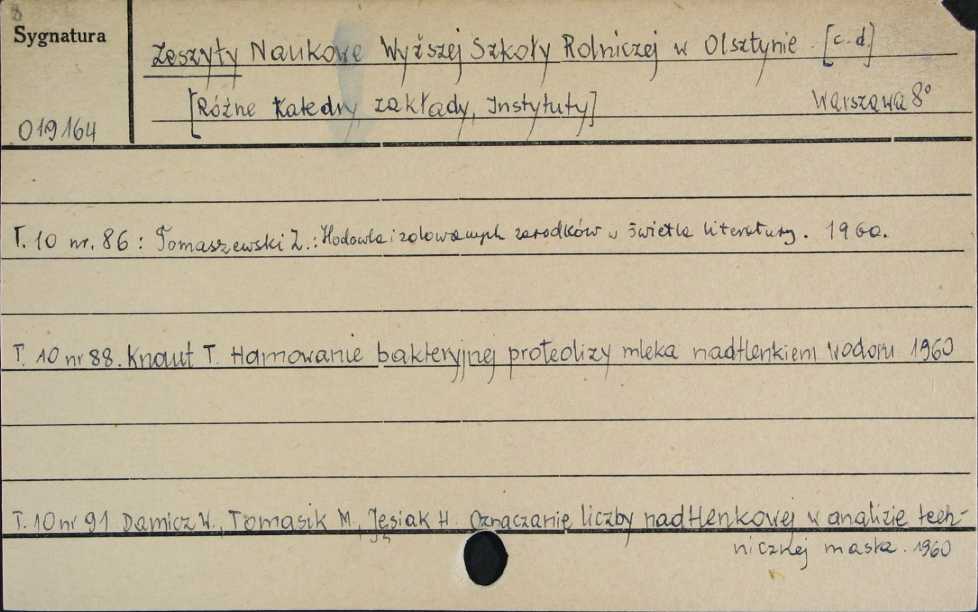 Sygnatura
Zeszyty Naukowe Wyższej Szkoły Rolniczej w Olsztynie. [c.d]
[Różne Katedry, zakłady, Instytuty] Warszawa 8°
019164
T. 10 nr. 86 : Tomaszewski Z.: Hodowla izolowanych zarodków w świetle literatury. 1960.
T. 10 nr 88. Knaut T. Hamowanie bakteryjnej proteolizy mleka nadtlenkiem wodoru 1960
T. 10 nr 91 Damicz W., Tomasik M., Jęsiak H. Oznaczanie liczby nadtlenkowej w analizie tech-
nicznej masła. 1960